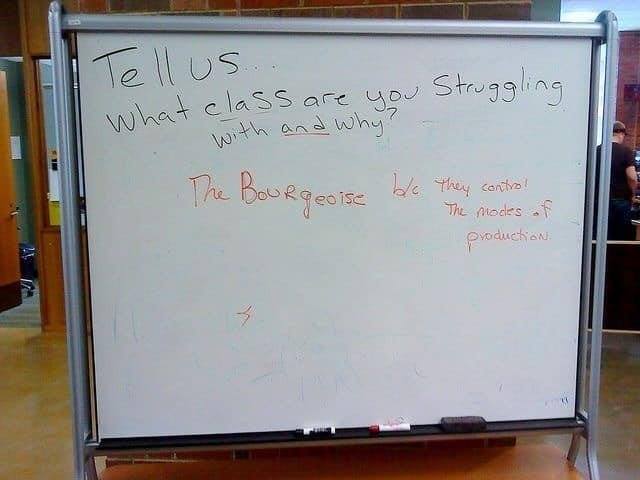 Tell us...
What class are you struggling
with and why?
The Bourgeoise b/c They control
The modes of
production